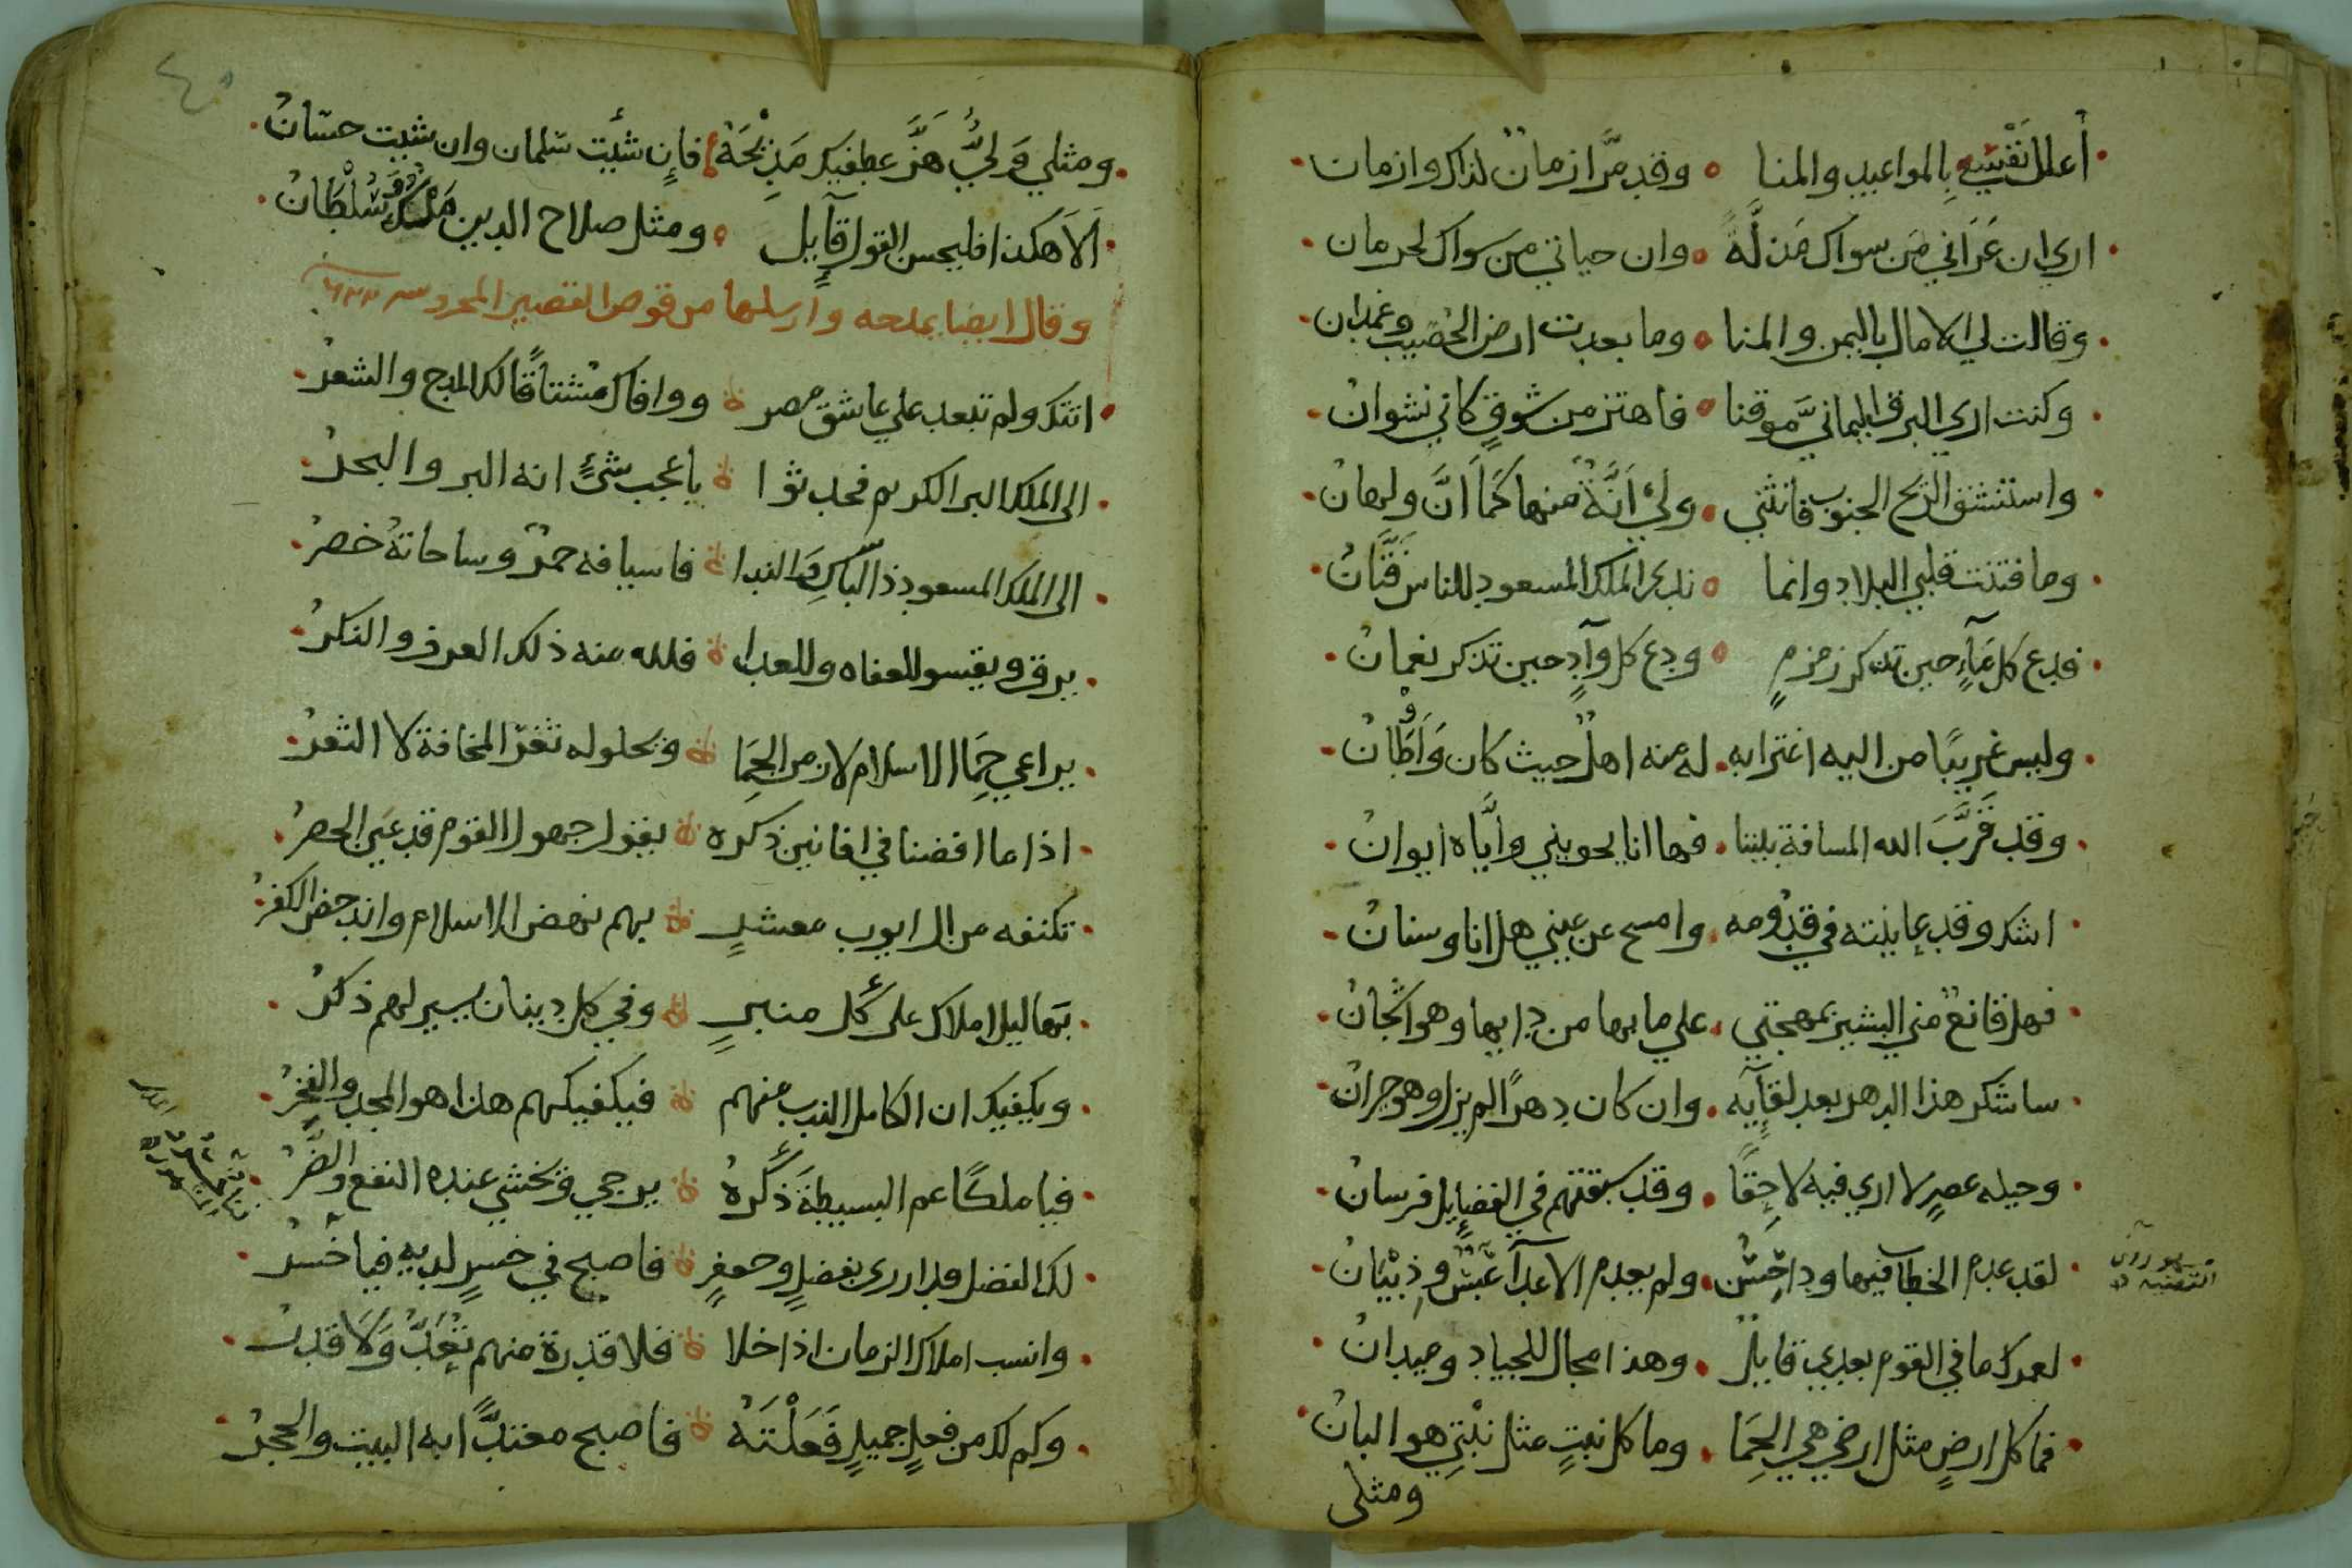 أعلل نفسي بالمواعيد والمنا وقد مرّ ازمانٌ لذاك وازمان
اري ان عَزاني من سواك مذلّةً وان حياتي من سواك لحرمان
وقالت لي الامال باليمن والمنا وما بعدت ارض الخصيب وغمدان
وكنت اري البرق اليمانيّ موقنا فاهتز من شوقٍ كاني نشوان
واستنشق الريح الجنوب فانثني ولي أنّةٌ منها كما انّ ولهان
وما فتنت قلبي البلاد وانما ندي الملك المسعود للناس فتّانُ
فدع كل مآءٍ حين تذكر زمزمٍ ودع كل وآدٍ حين تذكر نعمان
وليس غريبًا من اليه اغترابه له منه اهلٌ حيث كان وأوطانُ
وقد قرّبَ الله المسافة بيننا فها انا يحويني وايّاه ايوانُ
اشك وقد عاينته في قدومه وامسح عن عيني هل انا وسنانُ
فهل قانعٌ مني البشير بمهجتي علي ما بها من دايها وهو اشجانُ
ساشكر هذا الدهر بعد لقآيه وان كان دهرًا لم يزل وهو جرانُ
وحيله عصرٍ لا اري فيه لاحقًا وقد سبقتهم في الفضايل فرسانُ
لقد عدم الخطاب فيها وداحسٌ ولم يعدم الاعدآ عبسٌ وذبيانُ
لعمرك ما في القوم بعدي قايلٌ وهذا مجال للجياد وميدانُ
فما كل ارضٍ مثل ارضي هي الحِمَا وما كل نبتٍ مثل نبتي هو البانُ
ومثلي
ومثلي وليٌّ هَزَّ عطفيك مَدْحَهُ فإن شئت سلمان وان شيت حسّانُ
ألَا هكذا فليحسن القول قآيل ومثل صلاح الدين سُلْطَانُ
وقال ايضا يمدحه وارسلها من قوص القصير المحرد سـ ٦٢٢
اتتك ولم تبعد علي عاشق مصر ووافاك مشتاقًا لك المدح والشعرُ
الي الملك البر الكريم فحدثوا باعجب شئٍ انه البر والبحرُ
الي الملك المسعود ذي الباس والندا فاسيافه حمرٌ وساحاته خضرُ
يرق ويقسو للعفاه وللعدا فلله منه ذلك العرف والنكرُ
يراعي حِمَا الاسلام لا زمن الحِمَا ويحلو له ثغر المخافة لا الثغرُ
اذا ما افضنا في افانين ذكره يقول جهول القوم قد عيي الحصرُ
تكنفه من ال ايوب معشرٍ بهم نهض الاسلام واندحض الكفرُ
بهاليل املاك علي كل منبرٍ وفي كل دينار يسير لهم ذكرُ
ويكفيك ان الكامل الندب منهم فيكفيكهم هذا هو المجد والفخرُ
فيا ملكًا عم البسيطة ذكرهُ يرجي ويخشي عنده النفع والضرُّ
لك الفضل قد ازري بفضلٍ وجعفرٍ فاصبح في خسرٍ لديه فيا خسرُ
وانسب املاك الزمان اذا خلا فلا قدرة منهم تعدُّ ولا قدرُ
وكم لك من فعلٍ جميلٍ فعلتَهُ فاصبح معتدًّا به البيت والحجرُ